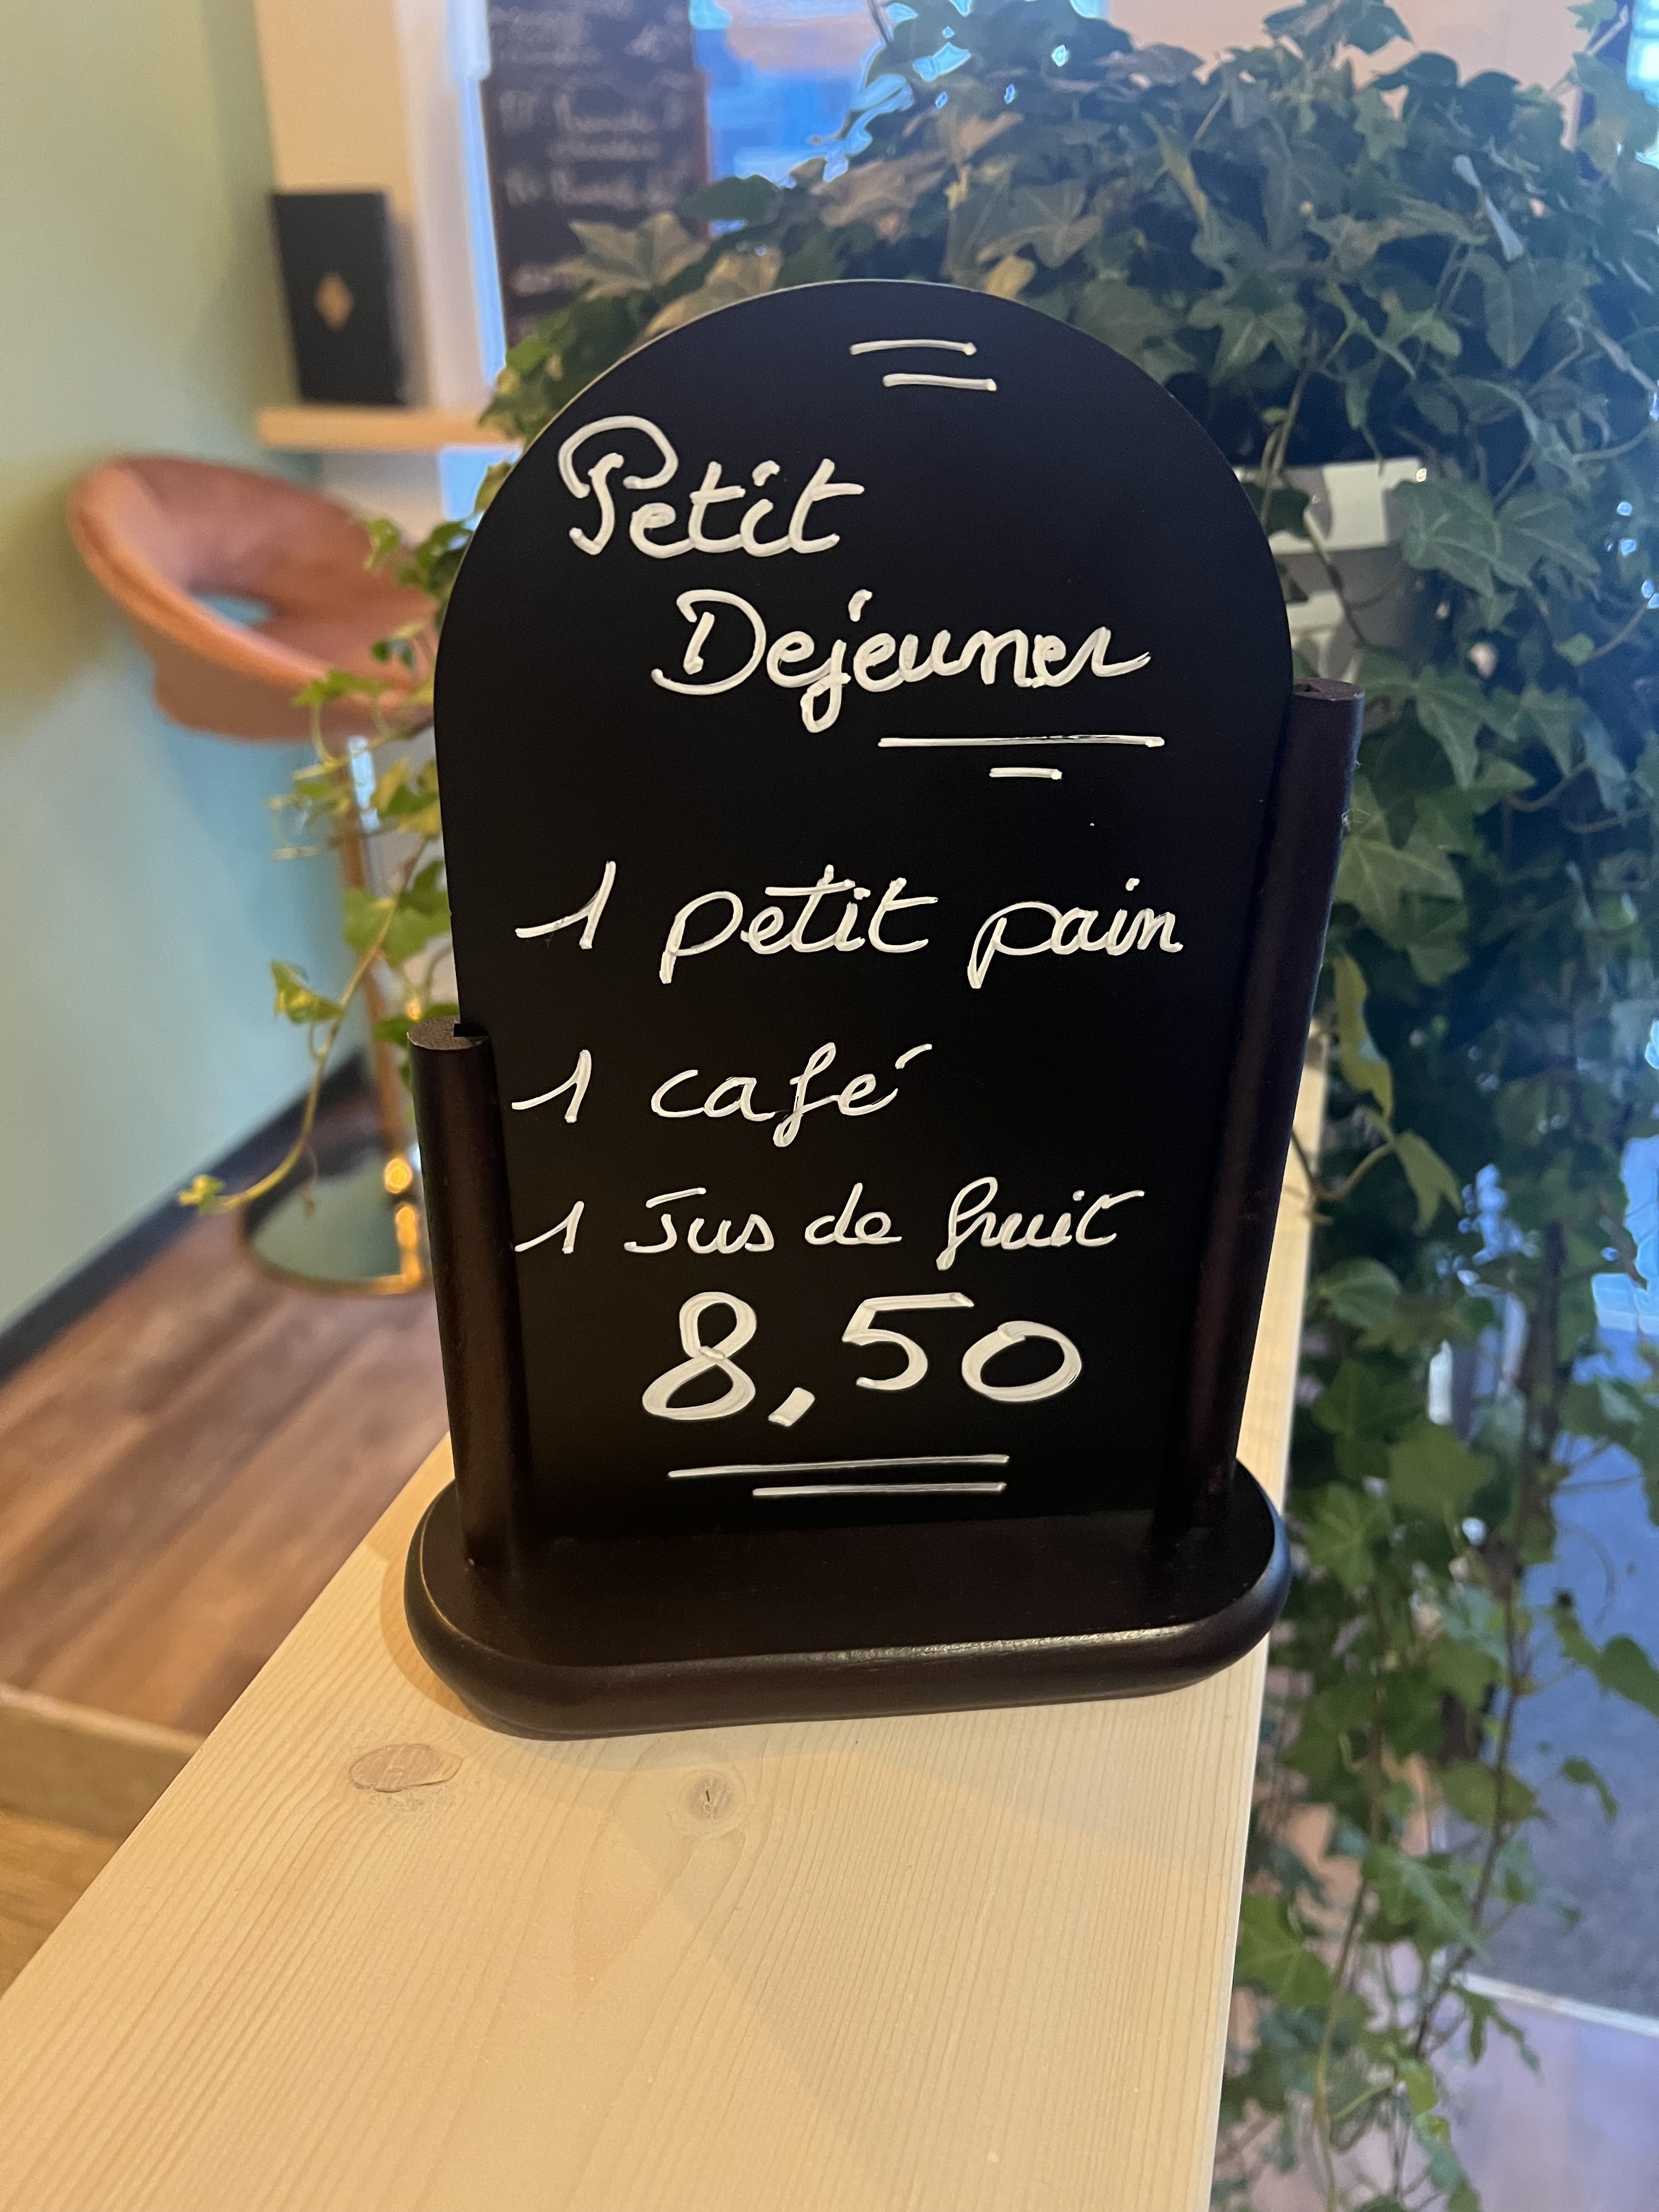 Petit
Dejeuner
1 petit pain
1 café
1 Jus de fruit
8,50